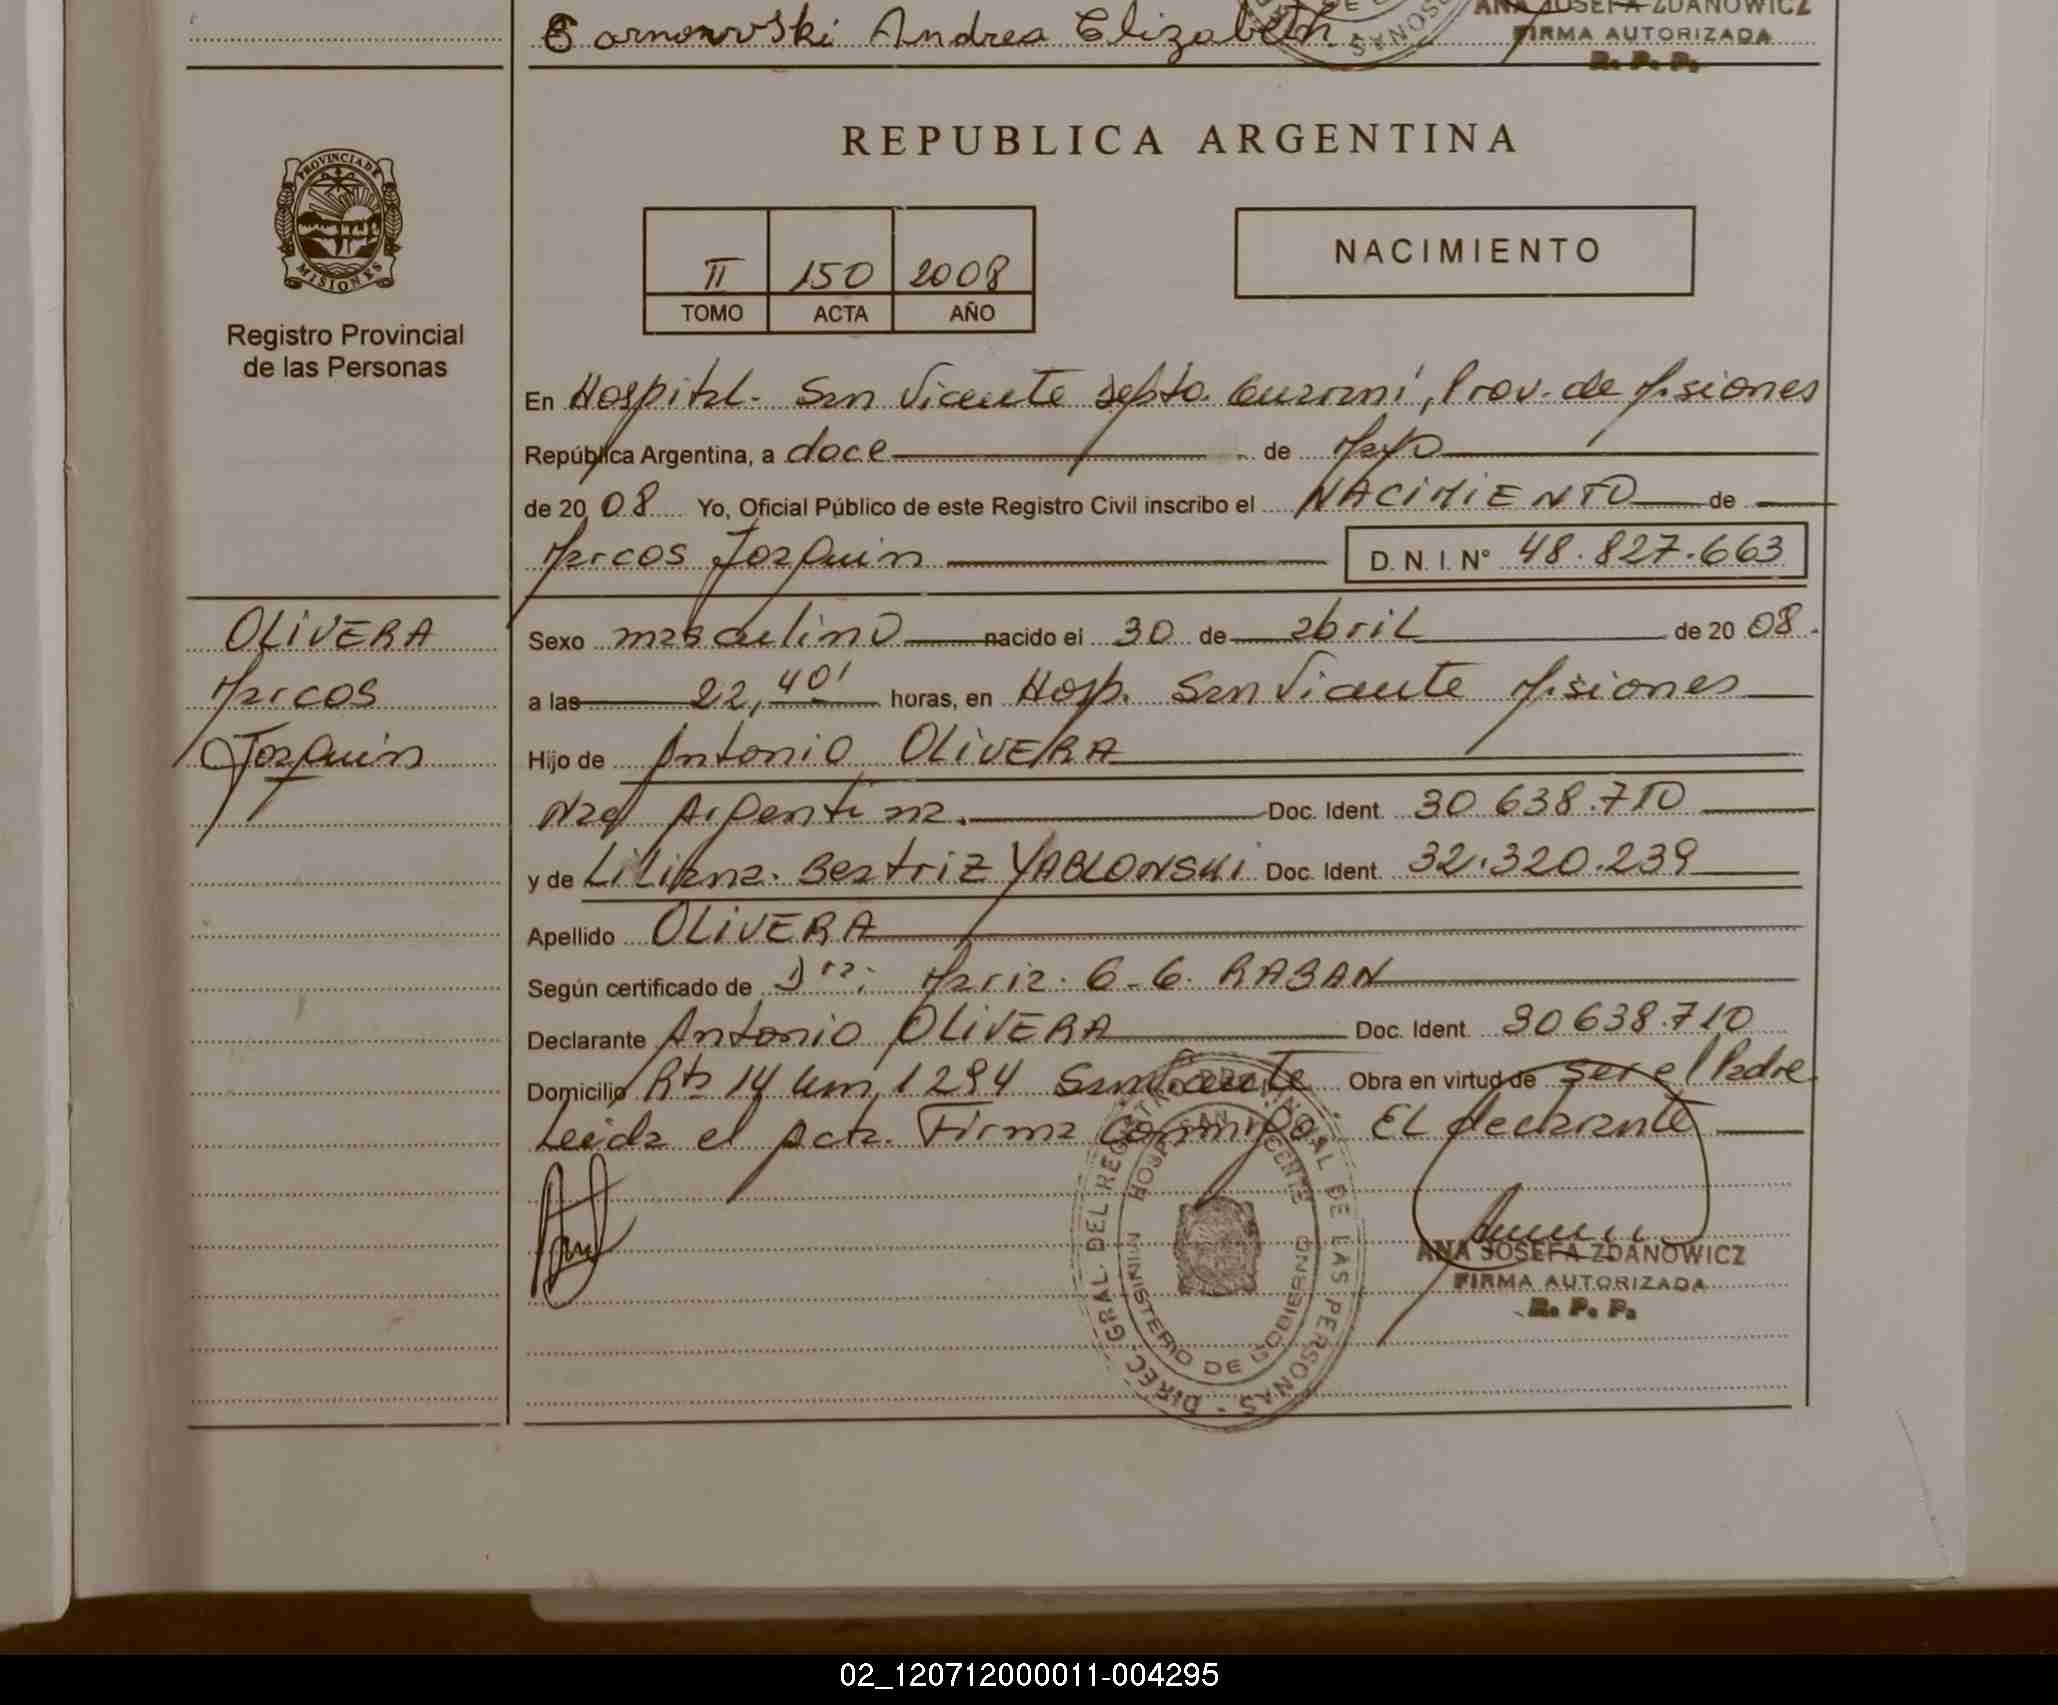 Sarnowski Andrea Elizabeth.
ANA JOSEFA ZDANOWICZ
FIRMA AUTORIZADA
R. P. P.
PROVINCIA DE
MISIONES
Registro Provincial
de las Personas
REPUBLICA ARGENTINA
II 150 2008
TOMO ACTA AÑO
NACIMIENTO
En Hospital. San Vicente Depto. Guaraní, Prov. de Misiones
República Argentina, a doce de Mayo
de 2008 Yo, Oficial Público de este Registro Civil inscribo el NACIMIENTO de
Marcos Joaquin D. N. I. N° 48.827.663
OLIVERA
Marcos
Joaquin
Sexo masculino nacido el 30 de abril de 2008.
a las 22,40' horas, en Hosp. San Vicente Misiones
Hijo de Antonio OLIVERA
Nac Argentina. Doc. Ident. 30 638.710
y de Liliana. Beatriz YABLONSKI Doc. Ident. 32.320.239
Apellido OLIVERA
Según certificado de Dra: Maria. G. G. RABAN
Declarante Antonio OLIVERA Doc. Ident. 30638.710
Domicilio Rta 14 km 1294 San Vicente Obra en virtud de ser el Padre
Leida el acta. Firma conmigo EL declarante
DIREC. GRAL. DEL REGISTRO PROVINCIAL DE LAS PERSONAS -
HOSP. SAN VICENTE
MINISTERIO DE GOBIERNO
ANA JOSEFA ZDANOWICZ
FIRMA AUTORIZADA
R. P. P.
02_120712000011-004295